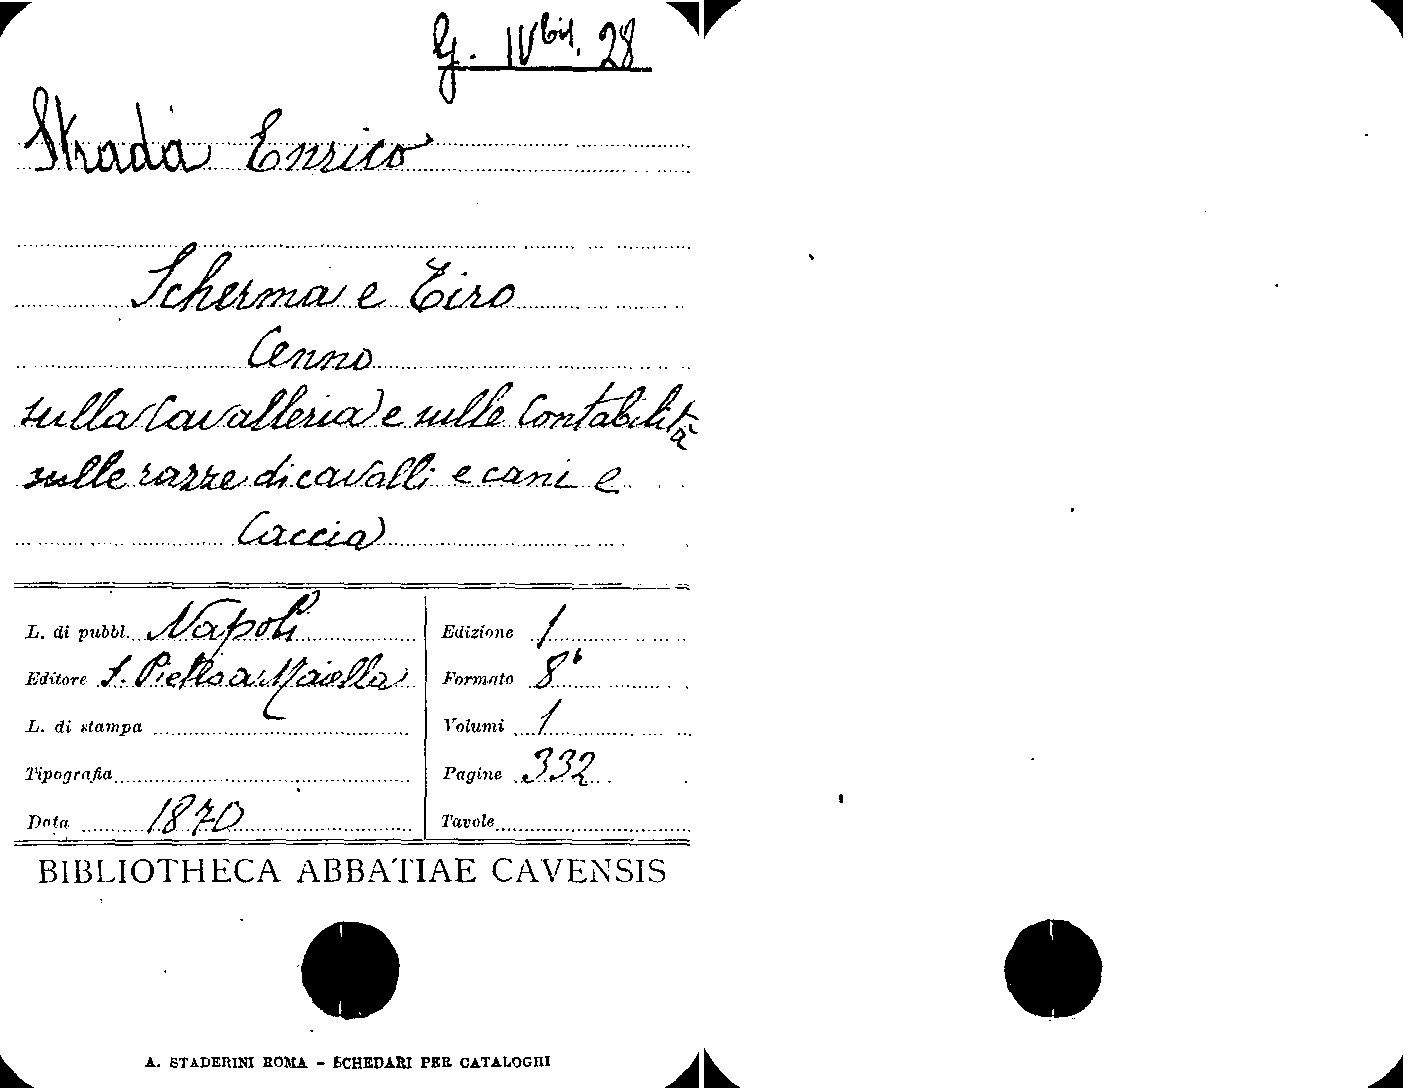 G. IV bis. 28
Strada Enrico
Scherma e Tiro
Cenno
sulla Cavalleria e sulle Contabilità
sulle razze di cavalli e cani e
Caccia
L. di pubbl. Napoli
Edizione 1
Editore S. Pietro a Maiella
Formato 8°
L. di stampa
Volumi 1
Tipografia
Pagine 332
Data 1870
Tavole
BIBLIOTHECA ABBATIAE CAVENSIS
A. STADERINI ROMA - SCHEDARI PER CATALOGHI